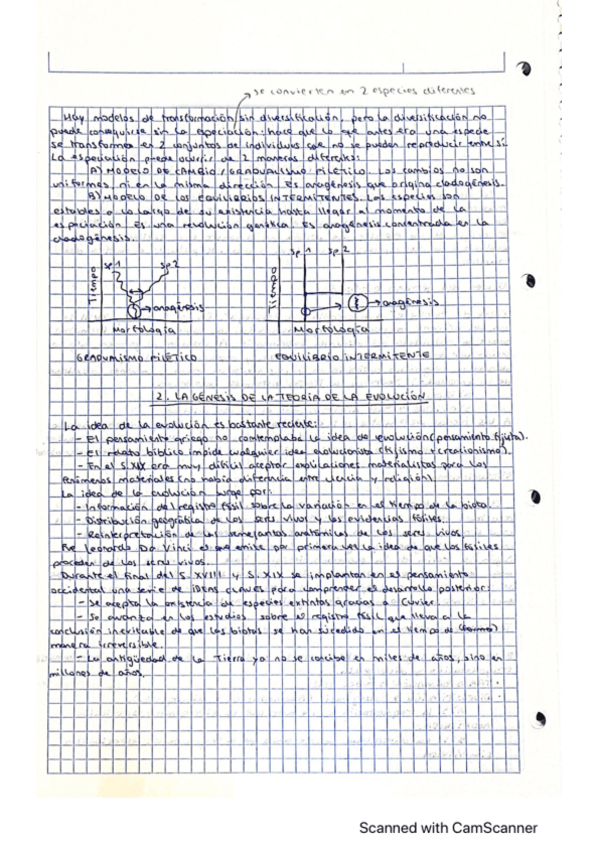 se convierten en 2 especies diferentes
Hay modelos de transformación sin diversificación, pero la diversificación no
puede conseguirse sin la especiación: hace que lo que antes era una especie
se transforma en 2 conjuntos de individuos que no se pueden reproducir entre sí.
La especiación puede ocurrir de 2 maneras diferentes:
A) MODELO DE CAMBIO / GRADUALISMO FILÉTICO. Los cambios no son
uniformes, ni en la misma dirección. Es anagénesis que origina cladogénesis.
B) MODELO DE LOS EQUILIBRIOS INTERMITENTES. Las especies son
estables a lo largo de su existencia hasta llegar al momento de la
especiación. Es una revolución genética. Es anagénesis concentrada en la
cladogénesis.
sp 1 sp 2
Tiempo
anagénesis
Morfología
GRADUALISMO FILÉTICO
sp 1 sp 2
Tiempo
anagénesis
Morfología
EQUILIBRIO INTERMITENTE
2. LA GÉNESIS DE LA TEORÍA DE LA EVOLUCIÓN
La idea de la evolución es bastante reciente:
- El pensamiento griego no contemplaba la idea de evolución (pensamiento fijista).
- El relato bíblico impide cualquier idea evolucionista (fijismo + creacionismo).
- En el S.XIX era muy difícil aceptar explicaciones materialistas para los
fenómenos materiales (no había diferencia entre ciencia y religión).
La idea de la evolución surge por:
- Información del registro fósil sobre la variación en el tiempo de la biota.
- Distribución geográfica de los seres vivos y las evidencias fósiles.
- Reinterpretación de las semejantes anatómicas de los seres vivos.
Fue Leonardo Da Vinci el que emite por primera vez la idea de que los fósiles
proceden de los seres vivos.
Durante el final del S. XVIII y S. XIX se implantan en el pensamiento
occidental una serie de IDEAS CLAVES para comprender el desarrollo posterior:
- Se acepta la existencia de especies extintas gracias a Cuvier.
- Se avanza en los estudios sobre el registro fósil que lleva a la
conclusión inevitable de que las biotas se han sucedido en el tiempo de (forma)
manera irreversible.
- La antigüedad de la Tierra ya no se concibe en miles de años, sino en
millones de años.
Scanned with CamScanner